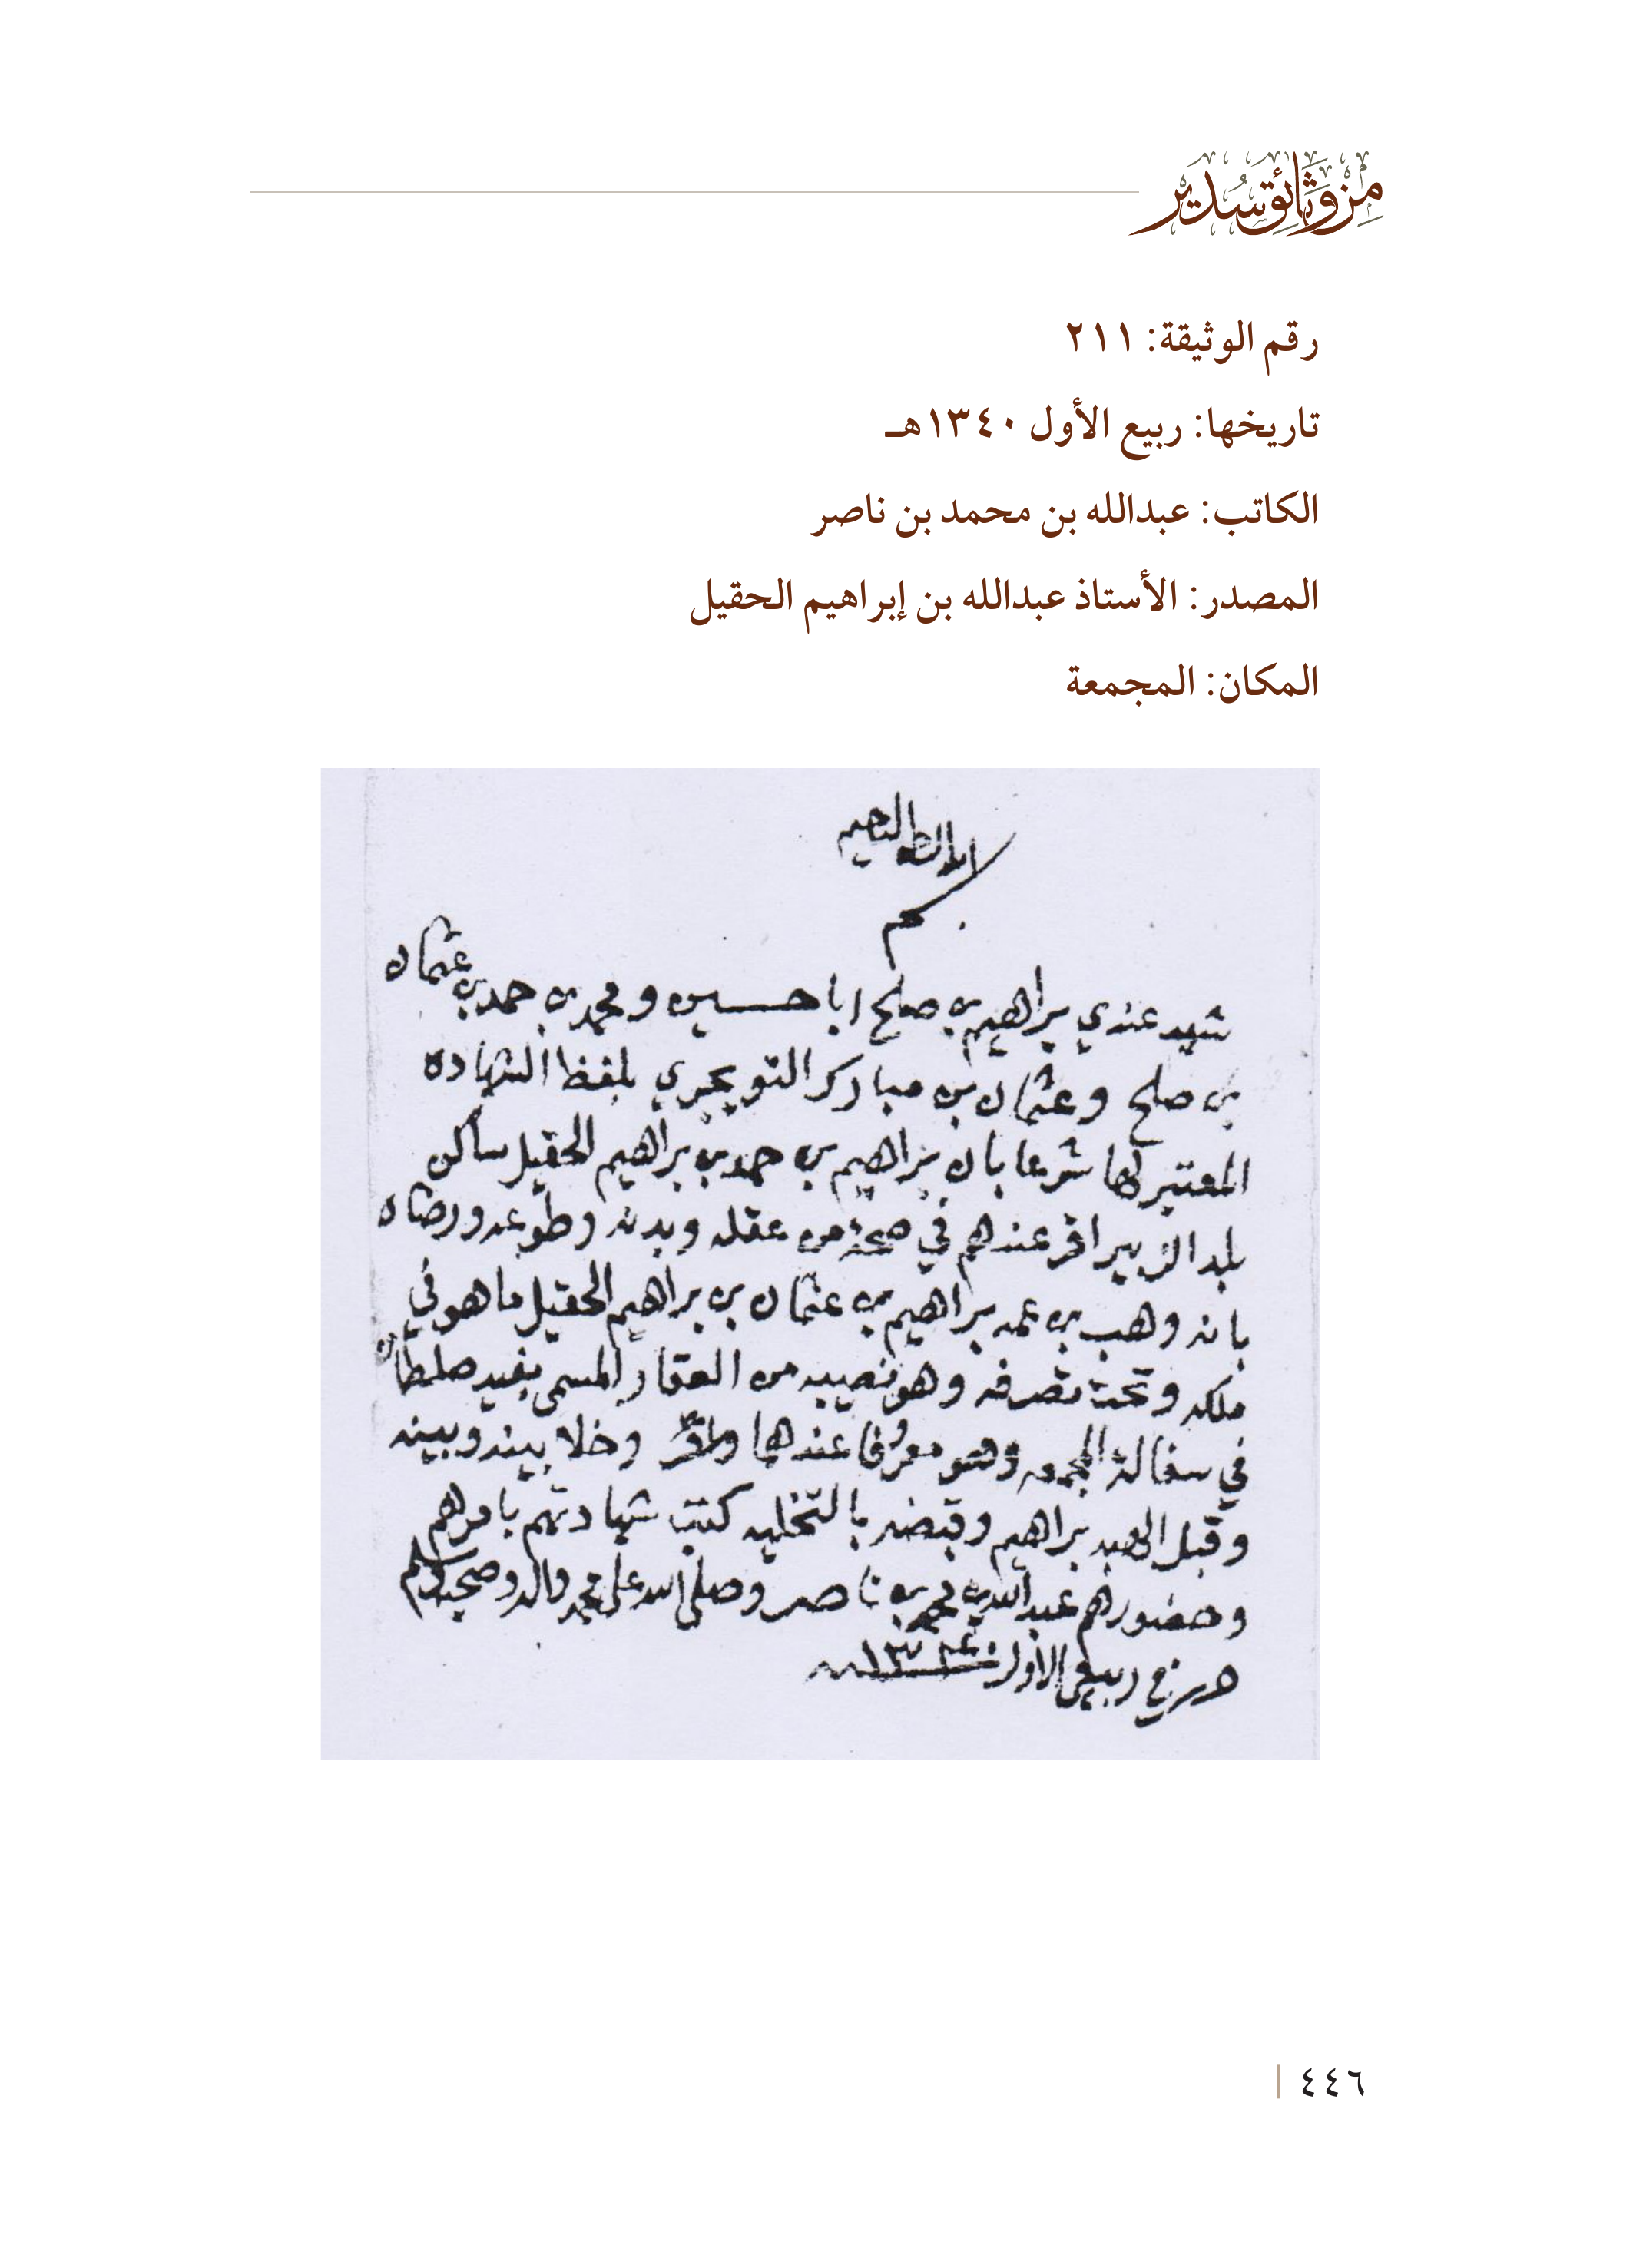 من وثائق سدير
رقم الوثيقة: ٢١١
تاريخها: ربيع الأول ١٣٤٠هـ
الكاتب: عبدالله بن محمد بن ناصر
المصدر: الأستاذ عبدالله بن إبراهيم الحقيل
المكان: المجمعة
بسم الله الرحمن الرحيم
شهد عندي براهيم بن صلح ابا حسين ومحمد بن حمد بن عثمان
بن صلح وعثمان بن مبارك التويجري بلفظ الشهاده
المعتبر لها شرعا بان براهيم بن حمد بن براهيم الحقيل ساكن
بلد الزبير اقر عندهم في صحة من عقله وبدنه وطوعه ورضاه
بانه وهب بن عمه براهيم بن عثمان بن براهيم الحقيل ما هو في
ملكه وتحت تصرفه وهو نصيبه من العقار المسمى بفيد صلطان
في سفالة المجمعه وهو معروفا عندها واقر وخلا بينه وبينه
وقبل براهيم وقبضه بالتخليه كتب شهادتهم بامرهم
وحضورهم عبدالله بن محمد بن ناصر وصلى الله على محمد واله وصحبه وسلم
حرر في ربيع الاول ١٣٤٠
٤٤٦